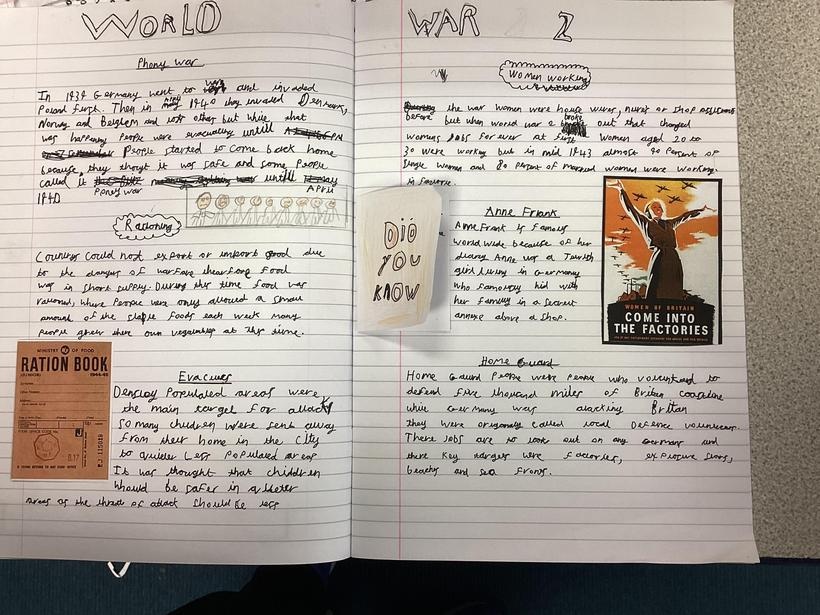 WORLD WAR 2
Phony war
In 1939 Germany went to war and invaded
Poland first. Then in may 1940 they invaded Denmark,
Norway and Belgium and lost other but while that
was happening People were evacuating untill
People started to come back home
because they thought it was safe and some People
called it Phoney war untill April
1940
Rationing
Countrys Could not export or import good due
to the dangers of warfare thearfore food
was in short supply. During this time food was
rationed, where People were only allowed a small
amount of the staple foods each week many
people grew there own vegetables at this time.
MINISTRY OF FOOD
RATION BOOK
Evacuees
Densley Populated areas were
the main target for attack
so many children were sent away
from their home in the city
to quieter Less populated areas
It was thought that children
would be safer in a better
areas as the threat of attack should be less
Women working
before the war women were house wives, nurses or shop assistants
but when world war 2 broke out that changed
womens Jobs for ever at first Women aged 20 to
30 were working but in mid 1943 almost 90 percent of
Single Women and 80 percent of married women were working.
in favourie.
DiD
you
KNOW
Anne Frank
Anne Frank is famous
world wide because of her
diary Anne was a Jewish
girl living in Germany
who famously hid with
her family in a secret
annexe above a shop.
WOMEN OF BRITAIN
COME INTO
THE FACTORIES
Home Guard
Home Guard People were people who volunterd to
defend five thousand miles of Britan coastline
while Germany was atacking Britan
they were origonaly called local Defence volunteers.
There Jobs are to look out on any German and
there key targets were factories, explosive stores,
beachs and sea fronts.